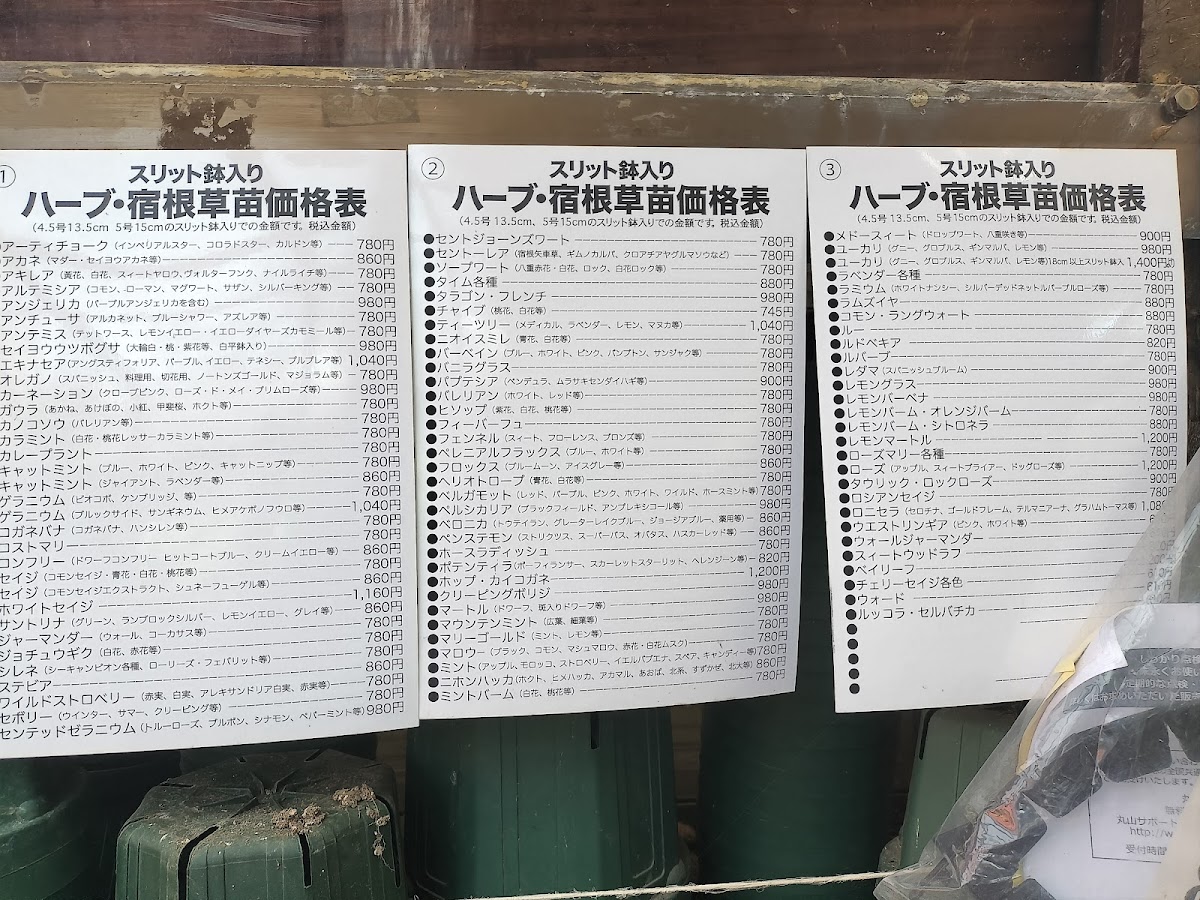 ①
スリット鉢入り
ハーブ・宿根草苗価格表
(4.5号13.5cm 5号15cmのスリット鉢入りでの金額です。税込金額)
アーティチョーク (インペリアルスター、コロラドスター、カルドン等) 780円
アカネ (マダー・セイヨウアカネ等) 860円
アキレア (黄花、白花、スィートヤロウ、ヴォルターフンク、ナイルライチ等) 780円
アルテミシア (コモン、ローマン、マグワート、サザン、シルバーキング等) 780円
アンジェリカ (パープルアンジェリカを含む) 980円
アンチューサ (アルカネット、ブルーシャワー、アズレア等) 780円
アンテミス (テットワース、レモンイエロー・イエローダイヤーズカモミール等) 780円
セイヨウウツボグサ (大輪白・桃・紫花等、白平鉢入り) 980円
エキナセア (アングスティフォリア、パープル、イエロー、テネシー、プルプレア等) 1,040円
オレガノ (スパニッシュ、料理用、切花用、ノートンズゴールド、マジョラム等) 780円
カーネーション (クローブピンク、ローズ・ド・メイ・プリムローズ等) 980円
ガウラ (あかね、あけぼの、小紅、甲斐桜、ホクト等) 780円
カノコソウ (バレリアン等) 780円
カラミント (白花・桃花レッサーカラミント等) 780円
カレープラント 780円
キャットミント (ブルー、ホワイト、ピンク、キャットニップ等) 780円
キャットミント (ジャイアント、ラベンダー等) 860円
ゲラニウム (ビオコボ、ケンブリッジ、等) 780円
ゲラニウム (ブルックサイド、サンギネウム、ヒメアケボノフウロ等) 1,040円
コガネバナ (コガネバナ、ハンシレン等) 780円
コストマリー 780円
コンフリー (ドワーフコンフリー ヒットコートブルー、クリームイエロー等) 860円
セイジ (コモンセイジ・青花・白花・桃花等) 780円
セイジ (コモンセイジエクストラクト、シュネーフューゲル等) 860円
ホワイトセイジ 1,160円
サントリナ (グリーン、ランブロックシルバー、レモンイエロー、グレイ等) 860円
ジャーマンダー (ウォール、コーカサス等) 780円
ジョチュウギク (白花、赤花等) 780円
シレネ (シーキャンピオン各種、ローリーズ・フェバリット等) 780円
ステビア 860円
ワイルドストロベリー (赤実、白実、アレキサンドリア白実、赤実等) 780円
セボリー (ウインター、サマー、クリーピング等) 780円
センテッドゼラニウム (トルーローズ、ブルボン、シナモン、ペパーミント等) 980円
②
スリット鉢入り
ハーブ・宿根草苗価格表
(4.5号 13.5cm、5号15cmのスリット鉢入りでの金額です。税込金額)
●セントジョーンズワート 780円
●セントーレア (宿根矢車草、ギムノカルパ、クロアチアヤグルマソウなど) 780円
●ソープワート (八重赤花・白花、ロック、白花ロック等) 780円
●タイム各種 880円
●タラゴン・フレンチ 980円
●チャイブ (桃花、白花等) 745円
●ティーツリー (メディカル、ラベンダー、レモン、マヌカ等) 1,040円
●ニオイスミレ (青花、白花等) 780円
●バーベイン (ブルー、ホワイト、ピンク、バンプトン、サンジャク等) 780円
●バニラグラス 780円
●バプテシア (ペンデュラ、ムラサキセンダイハギ等) 900円
●バレリアン (ホワイト、レッド等) 780円
●ヒソップ (紫花、白花、桃花等) 780円
●フィーバーフュー 780円
●フェンネル (スィート、フローレンス、ブロンズ等) 780円
●ペレニアルフラックス (ブルー、ホワイト等) 780円
●フロックス (ブルームーン、アイスグレー等) 860円
●ヘリオトロープ (青花、白花等) 780円
●ベルガモット (レッド、パープル、ピンク、ホワイト、ワイルド、ホースミント等) 780円
●ペルシカリア (ブラックフィールド、アンプレキシコール等) 980円
●ベロニカ (トウテイラン、グレーターレイクブルー、ジョージアブルー、薬用等) 860円
●ペンステモン (ストリクツス、スーパーバス、オバタス、ハスカーレッド等) 860円
●ホースラディッシュ 780円
●ポテンティラ (ボーフィランサー、スカーレットスターリット、ヘレンジーン等) 820円
●ホップ・カイコガネ 1,200円
●クリーピングボリジ 980円
●マートル (ドワーフ、斑入りドワーフ等) 980円
●マウンテンミント (広葉、細葉等) 780円
●マリーゴールド (ミント、レモン等) 780円
●マロウー (ブラック、コモン、マシュマロウ、赤花・白花ムスク) 780円
●ミント (アップル、モロッコ、ストロベリー、イエルバブエナ、スペア、キャンディー等) 780円
●ニホンハッカ (ホクト、ヒメハッカ、アカマル、あおば、北系、すずかぜ、北大等) 860円
●ミントバーム (白花、桃花等) 780円
③
スリット鉢入り
ハーブ・宿根草苗価格表
(4.5号 13.5cm、5号15cmのスリット鉢入りでの金額です。税込金額)
●メドースィート (ドロップワート、八重咲き等) 900円
●ユーカリ (グニー、グロブルス、ギンマルバ、レモン等) 980円
●ユーカリ (グニー、グロブルス、ギンマルバ、レモン等)18cm以上スリット鉢入 1,400円
●ラベンダー各種 780円
●ラミウム (ホワイトナンシー、シルバーデッドネットルパープルローズ等) 780円
●ラムズイヤ 880円
●コモン・ラングウォート 880円
●ルー 780円
●ルドベキア 820円
●ルバーブ 780円
●レダマ (スパニッシュブルーム) 900円
●レモングラス 980円
●レモンバーベナ 980円
●レモンバーム・オレンジバーム 780円
●レモンバーム・シトロネラ 880円
●レモンマートル 1,200円
●ローズマリー各種 780円
●ローズ (アップル、スィートブライアー、ドッグローズ等) 1,200円
●タウリック・ロックローズ 900円
●ロシアンセイジ 780円
●ロニセラ (セロチナ、ゴールドフレーム、テルマニアーナ、グラハムトーマス等)
●ウエストリンギア (ピンク、ホワイト等)
●ウォールジャーマンダー
●スィートウッドラフ
●ベイリーフ
●チェリーセイジ各色
●ウォード
●ルッコラ・セルバチカ
●
●
●
●
●
丸山サポート
http://w
受付時間